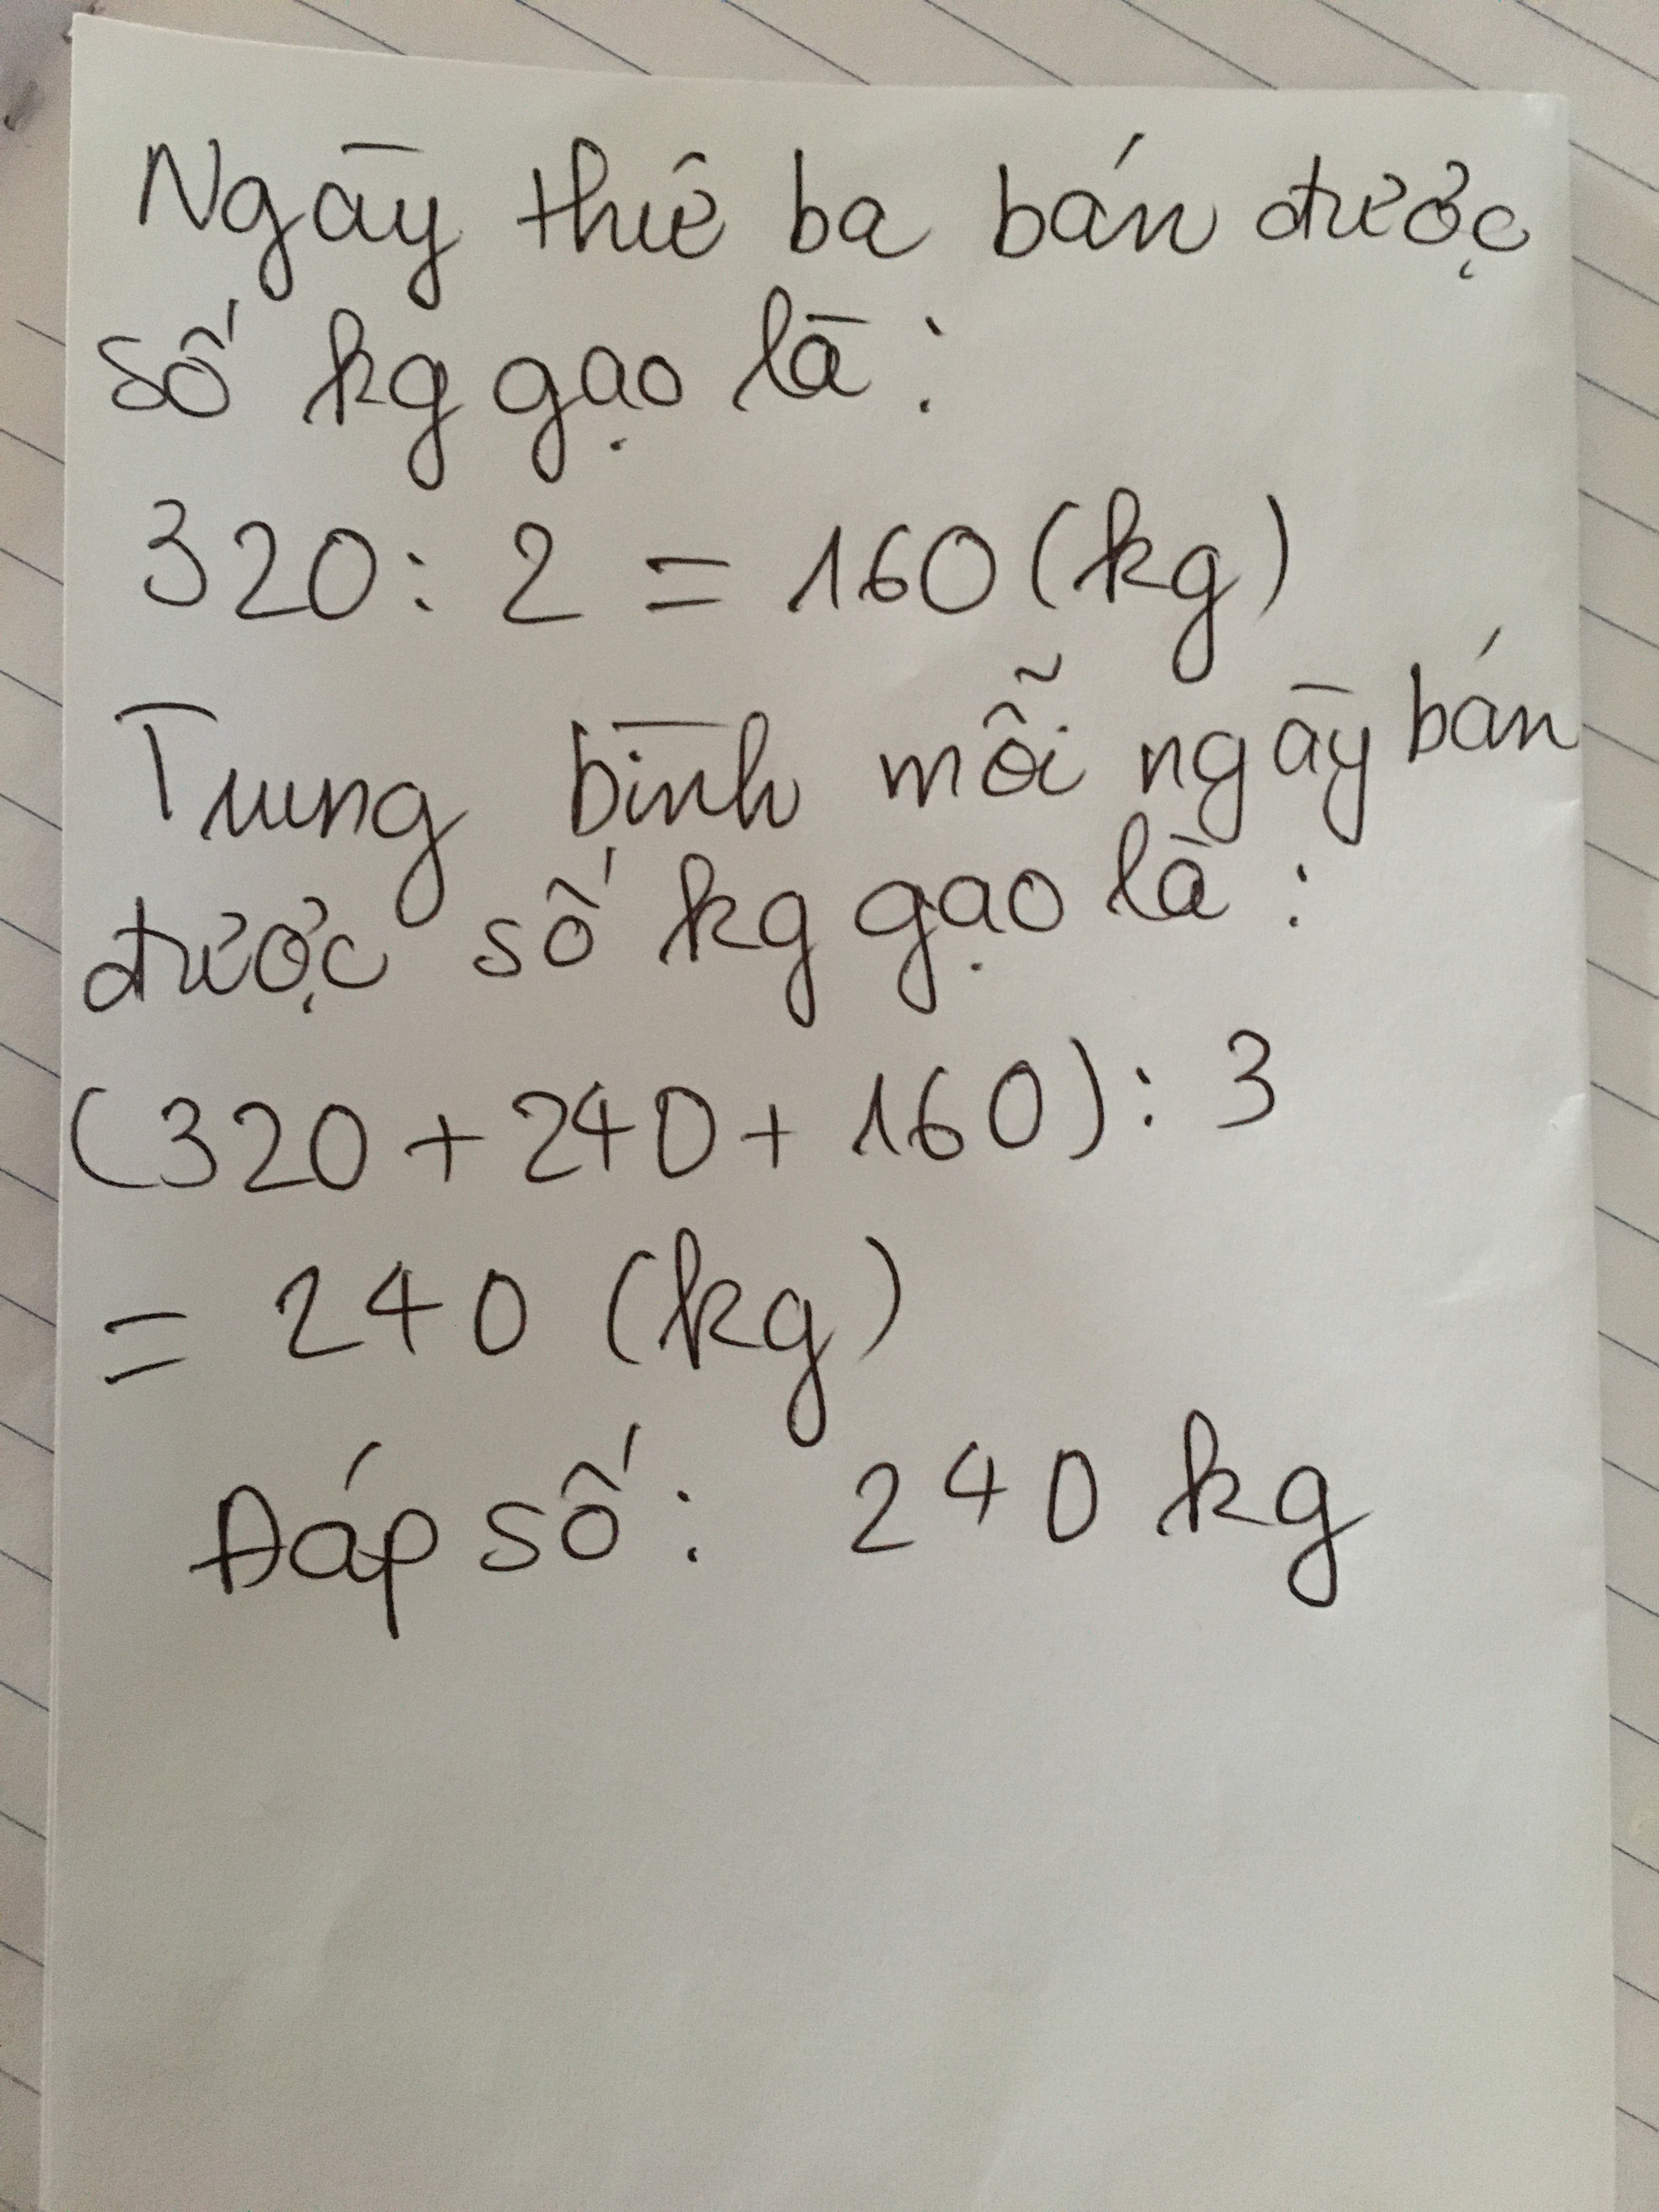 Ngày thứ ba bán được
số kg gạo là :
320 : 2 = 160 (kg)
Trung bình mỗi ngày bán
được số kg gạo là :
(320 + 240 + 160) : 3
= 240 (kg)
Đáp số : 240 kg